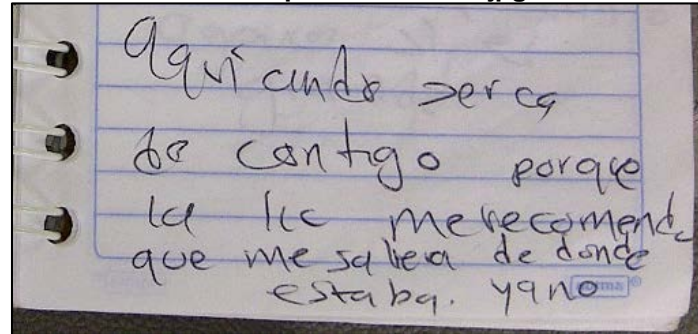 Aqui ando serca
de contigo porque
la lic me recomenda
que me saliera de donde
estaba. ya no